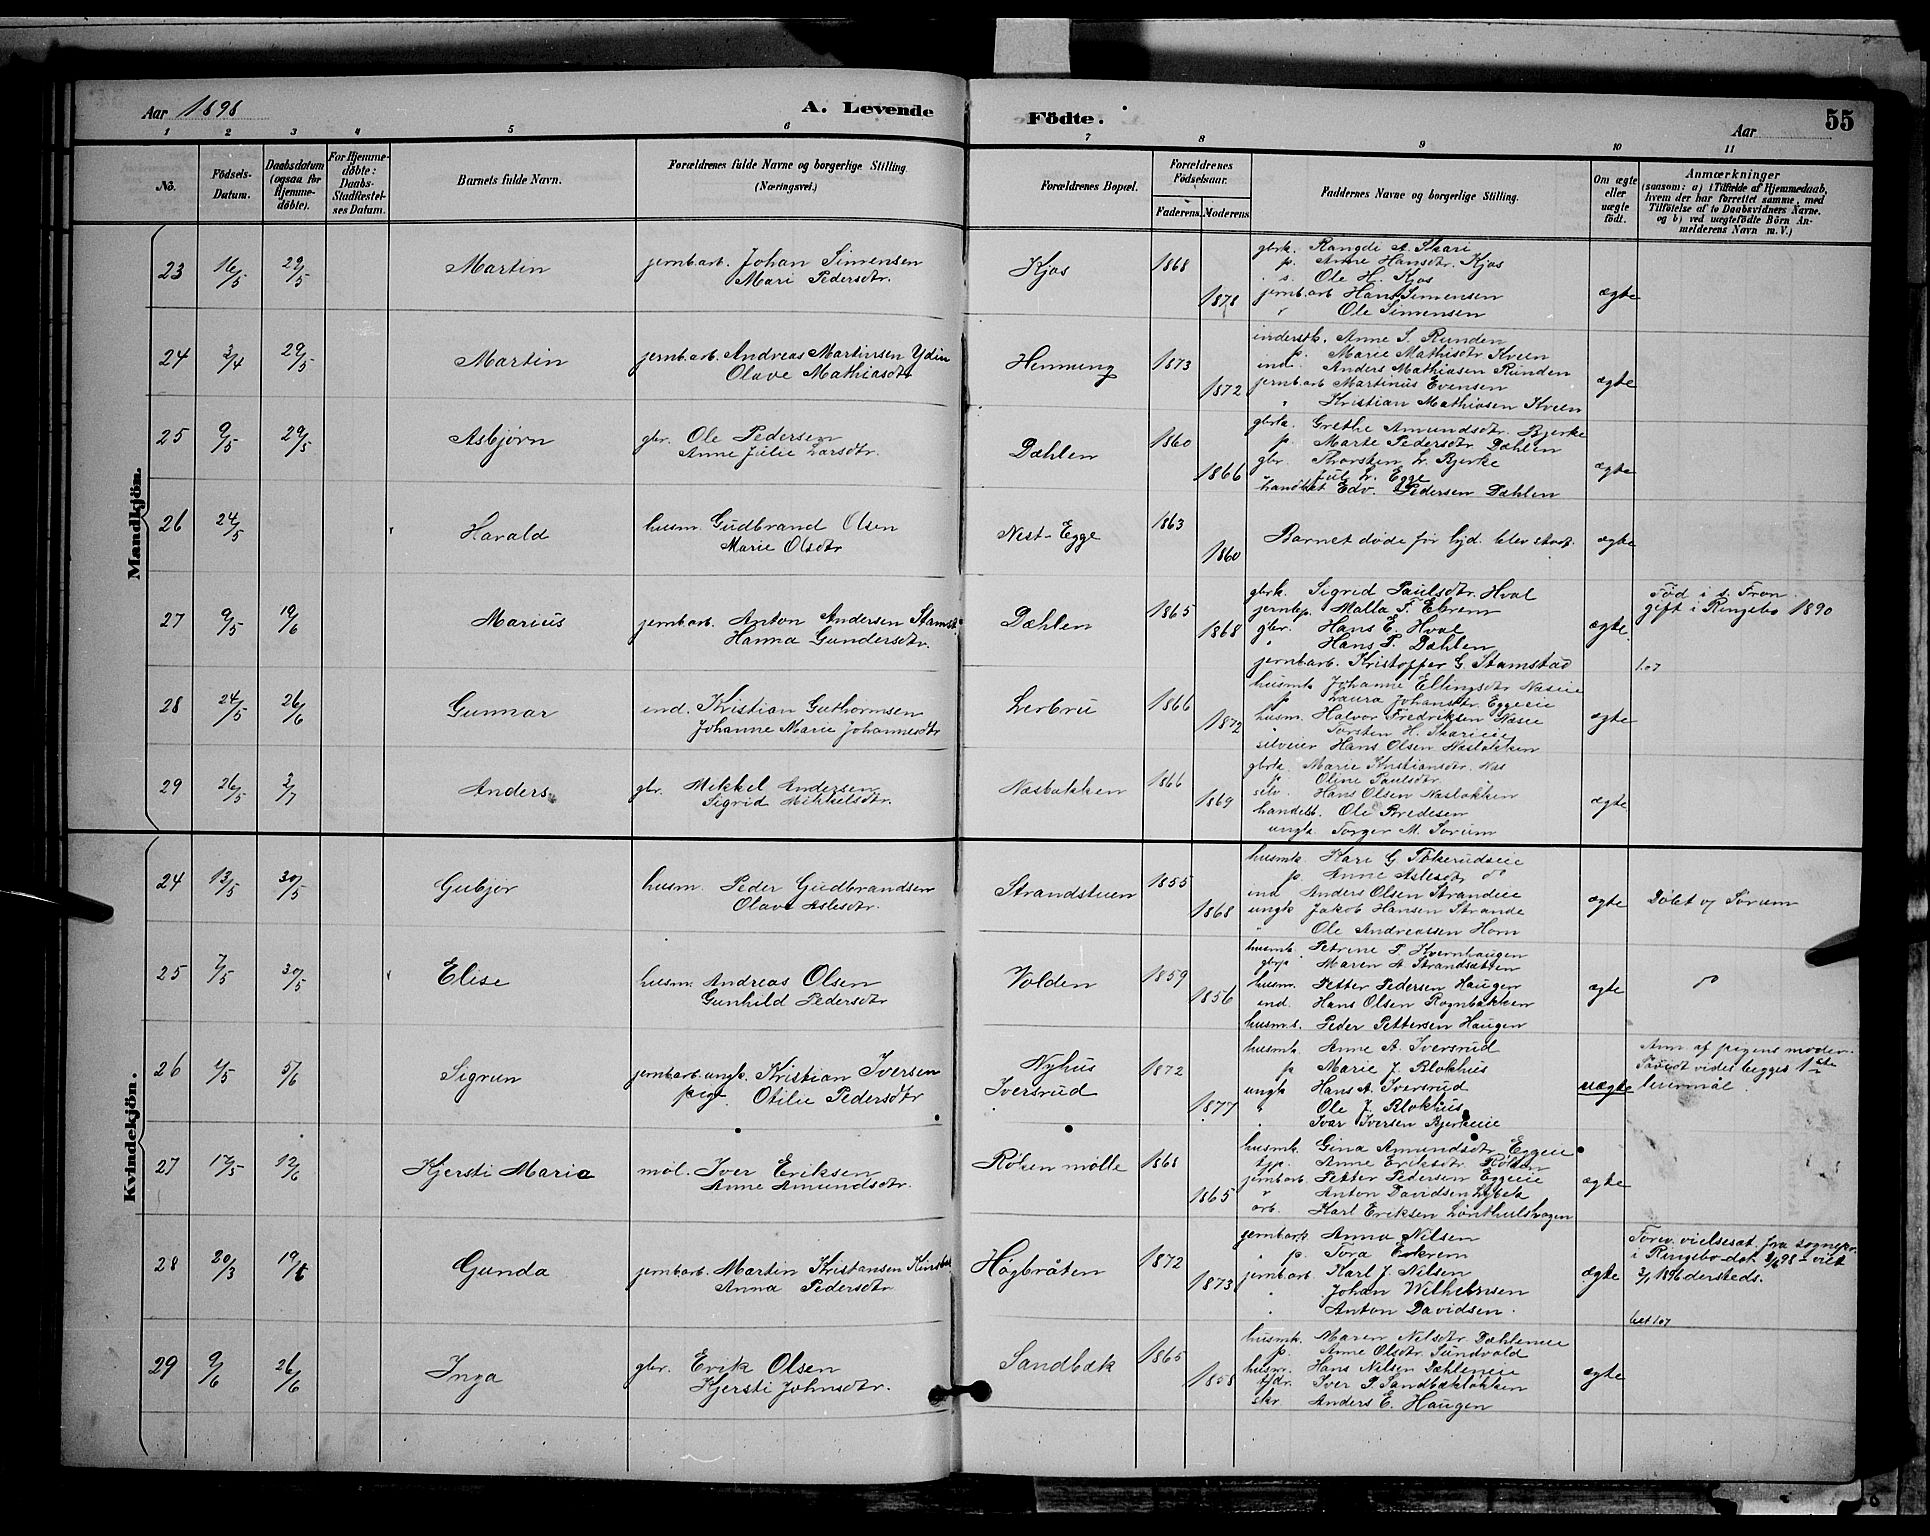 Aar 1898
A. Levende
Födte.
Aar
55
1 2 3 4 5 6 7 8 9 10 11
No.
Födsels-Datum.
Daabsdatum (ogsaa for Hjemme-döbte).
For Hjemme-döbte: Daabs-Stadfæstel-ses Datum.
Barnets fulde Navn.
Forældrenes fulde Navne og borgerlige Stilling. (Næringsvei.)
Forældrenes Bopæl.
Forældrenes Födselsaar.
Faderens. Moderens.
Faddernes Navne og borgerlige Stilling.
Om ægte eller uægte födt.
Anmærkninger
(saasom: a) i Tilfælde af Hjemmedaab, hvem der har forrettet samme, med Tilföielse af to Daabsvidners Navne, og b) ved uægtefödte Börn An-melderens Navn m. V.)
Mandkjön.
23 16/5 29/5 Martin
jernb.arb. Johan Simensen
Mari Pedersdtr.
Kjos 1868 1878
gbrk. Rangdi A. Skari
p. Anne Hansdtr. Kjos
s. Ole H. Kjos
jernb.arb Hans Simensen
" Ole Simensen
ægte
24 3/4 29/5 Martin
jernb.arb. Andreas Martinsen Ydin
Olave Mathiasdtr
Henning 1873 1872
inderstk. Anne S. Runden
p. Marie Mathisdtr Kveen
ind. Anders Mathiasen Runden
jernb.arb Martinus Evensen
" Kristian Mathiasen Kveen
ægte
25 9/5 29/5 Asbjørn
gbr. Ole Pedersen
Anne Julie Larsdtr.
Dæhlen 1860 1866
gbrk. Grethe Amundsdtr. Bjerke
p. Marte Pedersdtr Dæhlen
gbr. Thorsten L. Bjerke
" Jul L. Egge
handl.bet Edv. Pedersen Dæhlen
ægte
26 24/5 Harald
husm. Gudbrand Olsen
Marie Olsdtr
Nest-Egge 1863 1860
Barnet døde før hjd. blev stadf.
ægte
27 9/5 19/6 Marius
jernb.arb. Anton Andersen Stamst.
Hanna Gundersdtr.
Dæhlen 1865 1868
gbrk. Sigrid Paulsdtr. Hval
jernbp. Malla T. Ekrem
gbr. Hans E. Hval
" Hans P. Dæhlen
jernb.arb. Kristoffer G. Stamstad
ægte
Fød i s. Fron
gift i Ringebo 1890
28 24/5 26/6 Gunnar
ind. Kristian Guthormsen
Johanne Marie Johannesdtr
Lerbru 1866 1872
husmk Johanne Ellingsdtr Næseie
p. Laura Johansdtr. Eggeeie
husm. Halvor Fredriksen Næseie
" Torsten H. Skareeie
selveier Hans Olsen Næsbakken
ægte
29 26/5 3/7 Anders
gbr. Mikkel Andersen
Sigrid Mikkelsdtr.
Næsbakken 1866 1869
gbrk. Marie Kristiansdtr. Næs
p. Oline Paulsdtr.
selv. Hans Olsen Næsbakken
handelsb. Ole Bredesen
ungk. Torger M. Sørum
ægte
Kvindekjön.
24 13/5 30/5 Gubjør
husm. Peder Gudbrandsen
Olave Aslesdtr.
Strandstuen 1855 1868
husmk. Kari G Tokerudeie
p. Anne Aslesdtr do
ind Anders Olsen Strandeie
ungk Jakob Hansen Strande
" Ole Andreassen Horn
ægte
Døbt og Sørum
25 7/5 30/5 Elise
husm. Andreas Olsen
Gunhild Pedersdtr
Volden 1859 1856
husmk. Petrine P. Kvernhaugen
gbrp. Maren A Strandsætten
husm. Petter Pedersen Haugen
ind. Hans Olsen Rognbakken
husm.s. Peder Pettersen Haugen
ægte
do
26 4/5 5/6 Sigrun
jernb.arb.ungk. Kristian Iversen
pige Otilie Pedersdtr
Nyhus
Iversrud 1872 1877
husmk. Anne A. Iversrud
p Marie J. Blokhus
ungk Hans A. Iversrud
" Ole J. Blokhus
" Ivar Iversen Bjerkeie
uægte
Anm af pigens moder.
Såvidt vides begges 1ste
leiermål.
27 17/5 12/6 Kjersti Marie
møl. Iver Eriksen
Anne Amundsdtr.
Røken mølle 1868 1865
husmk. Gina Amundsdtr. Eggeie
tjp. Anne Eriksdtr. Røken
jernb.arb. Petter Pedersen Eggeeie
" Anton Davidsen Lybek
arb. Karl Eriksen Lønhulshagen
ægte
28 20/3 19/6 Gunda
jernb.arb. Martin Kristansen
Anna Pedersdtr
Høgbråten 1872 1873
jernb.ark. Anna Nilsen
" p. Tora Ekrem
jernb.arb. Karl J. Nilsen
" Johan Wilhelmsen
" Anton Davidsen.
ægte
Forev. vielsesat. fra sognepr.
i Ringebo dat. 2/6 98 - viet
3/1 1896 dersteds.
29 9/6 26/6 Inga
gbr. Erik Olsen
Kjersti Johnsdtr.
Sandbæk 1865 1858
husmk. Maren Nilsdtr Dæhleneie
p. Anne Olsdtr. Sundvold
husm. Hans Nilsen Dæhleneie
Iver P. Sandbækløkken
skr. Anders E. Haugen
ægte